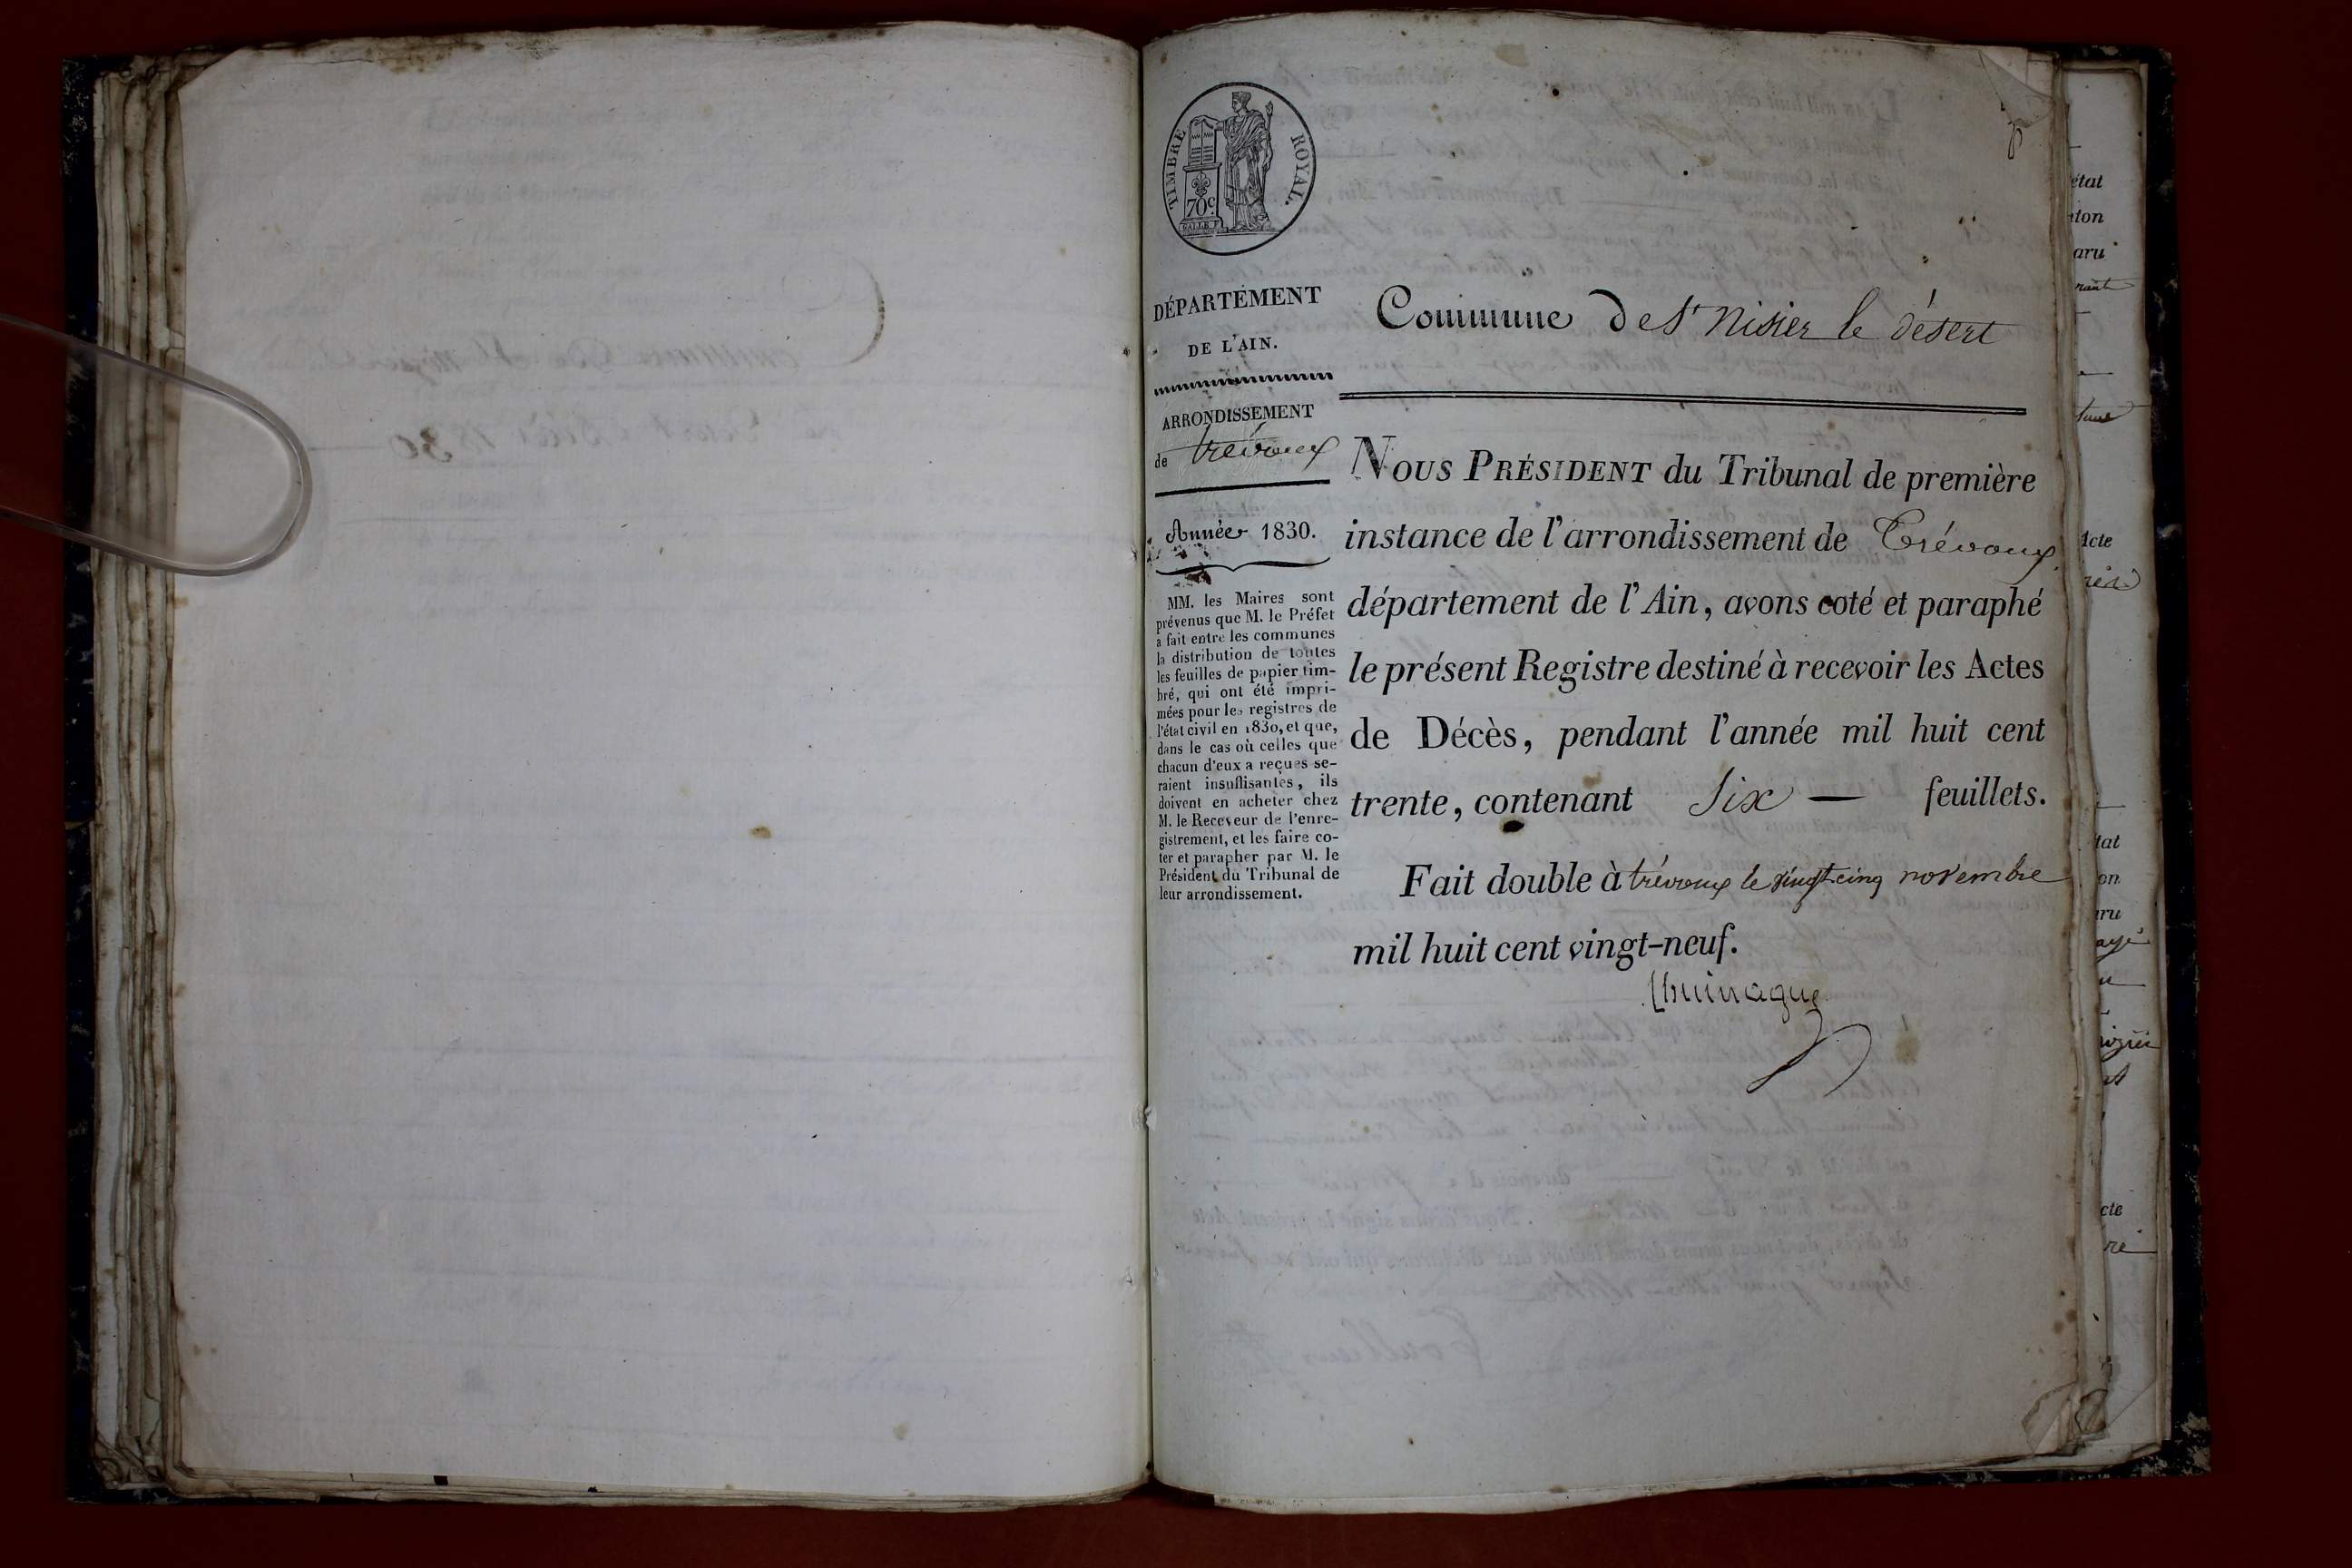 TIMBRE ROYAL.
70c.
DÉPARTEMENT
DE L'AIN.
ARRONDISSEMENT
de trévoux
Année 1830.
MM. les Maires sont
prévenus que M. le Préfet
a fait entre les communes
la distribution de toutes
les feuilles de papier tim-
bré, qui ont été impri-
mées pour les registres de
l'état civil en 1830, et que,
dans le cas où celles que
chacun d'eux a reçues se-
raient insuffisantes, ils
doivent en acheter chez
M. le Receveur de l'enre-
gistrement, et les faire co-
ter et parapher par M. le
Président du Tribunal de
leur arrondissement.
Commune de St nisier le désert
NOUS PRÉSIDENT du Tribunal de première
instance de l'arrondissement de Trévoux
département de l'Ain, avons coté et paraphé
le présent Registre destiné à recevoir les Actes
de Décès, pendant l'année mil huit cent
trente, contenant Six — feuillets.
Fait double à trévoux le vingt cinq novembre
mil huit cent vingt-neuf.
état
ton
aru
Acte
tat
on
aru
cte